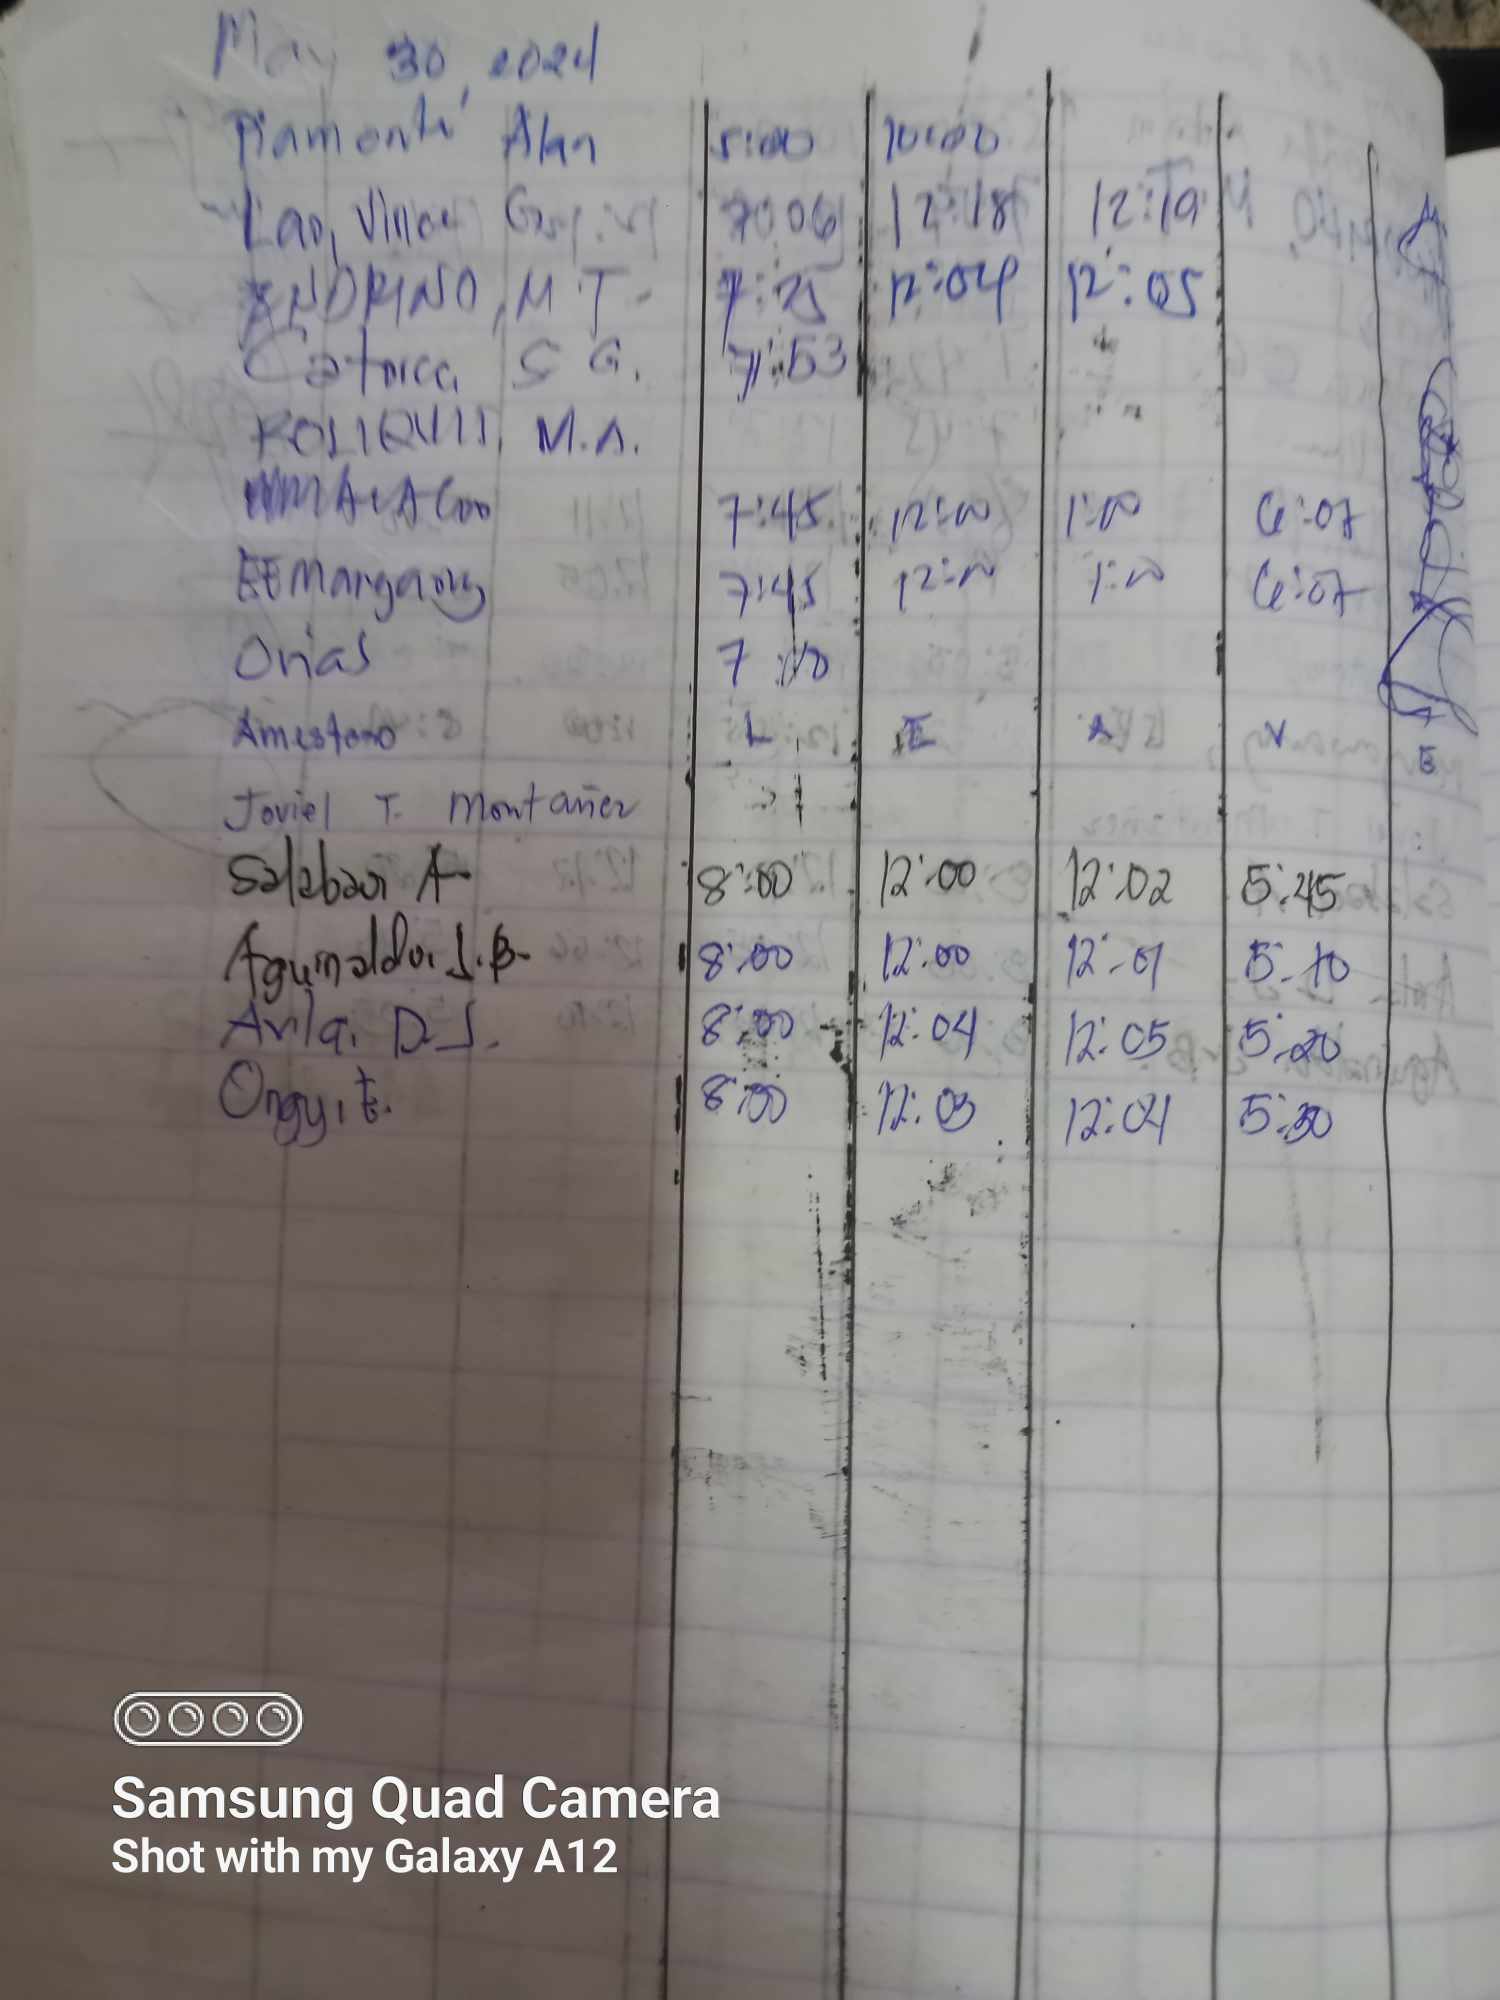 May 30, 2024
Piamonte Alan 5:00 10:00
Lao, Vince 7:06 12:18 12:19
ANDRINO, M.T. 7:25 12:04 12:05
Catoica S G. 7:53
M.A.
7:45 12:00 1:00 6:07
EEMangaong 7:45 12:00 1:00 6:07
Orias 7:10
Amestoso L E A V E
Joviel T. Montañez
Salabao A 8:00 12:00 12:02 5:45
Aguinaldo, J.B. 8:00 12:00 12:01 5:10
Avila, D.J. 8:00 12:04 12:05 5:20
Ongy, E. 8:00 12:03 12:04 5:30
Samsung Quad Camera
Shot with my Galaxy A12